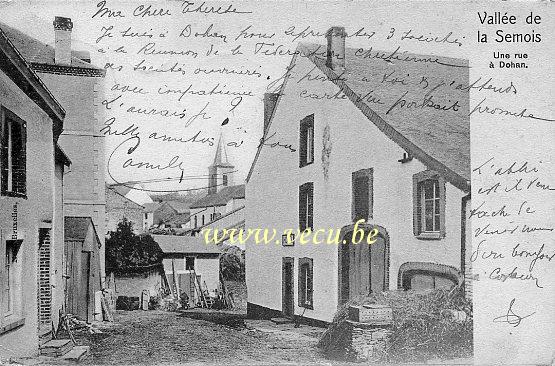 Ma chère Thérèse
Je suis à Dohan pour représenter 3 sociétés
à la Réunion de la Fédération chrétienne
des sociétés ouvrières. Je pense à toi & j'attends
avec impatience carte vue portrait promise
L'aurais-je ?
Mille amitiés à tous
Camille
Vallée de
la Semois
Une rue
à Dohan.
L'abbé
est il venu
tache de
venir nous
dire bonjour
à
www.vecu.be
Bruxelles